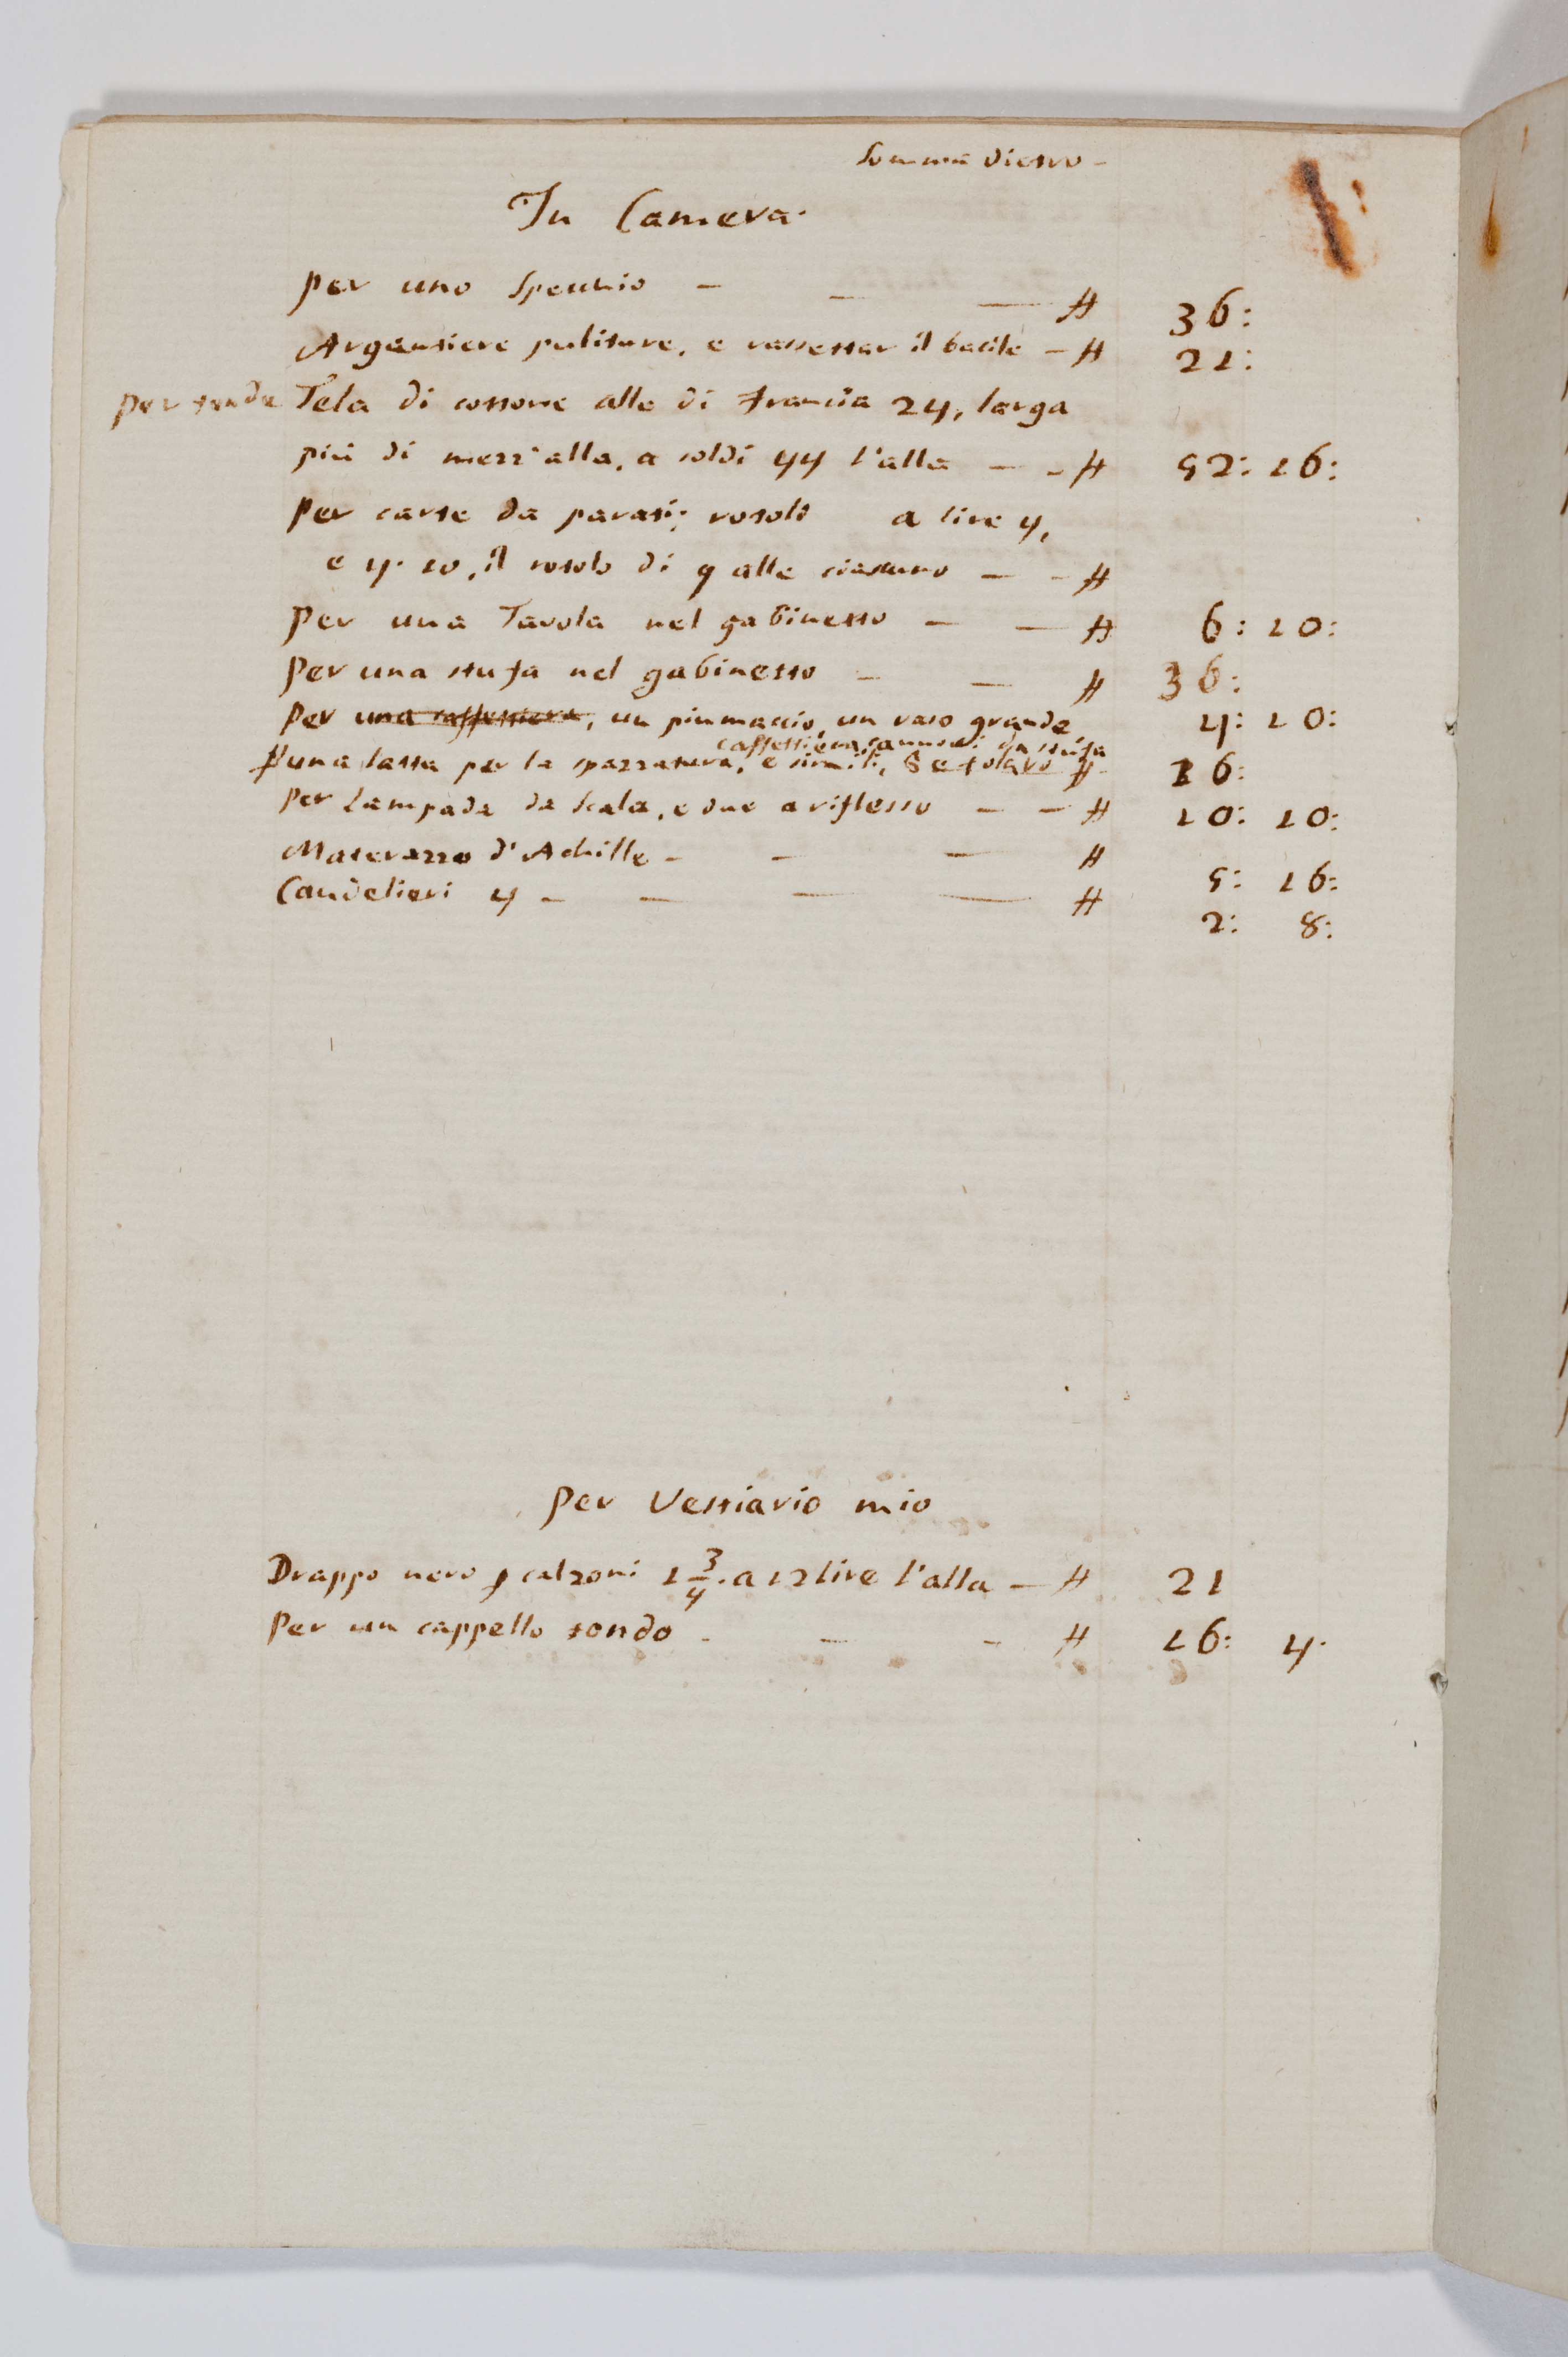 Somma dietro -
In Camera.
per uno Specchio - - - ₶ 36:
Argentiere puliture, e rassettar il bacile - ₶ 21:
per tende Tela di cottone alle di Francia 24, larga
più di mezz'alla, a soldi 44 l'alla - - ₶ 52: 16:
per carte da parati; rotoli a lire 4,
e 4. 10, il rotolo di 9 alle ciascuno - - ₶
per una Tavola nel gabinetto - - ₶ 6: 10:
per una stufa nel gabinetto - - ₶ 36:
per una caffettiera, un piumaccio, un vaso grande 4: 10:
caffettiera, cannoni da stufa
una lassa per la spazzatura, e simili, Setolaro ₶ 16:
per Lampada da Scala, e due a riflesso - - ₶ 10: 10:
Materazzo d'Achille - - - ₶ 5: 16:
Candelieri 4 - - - - ₶ 2: 8:
per Vestiario mio
Drappo nero p calzoni 1 3/4. a 12 lire l'alla - ₶ 21
Per un cappello tondo - - - ₶ 16: 4.